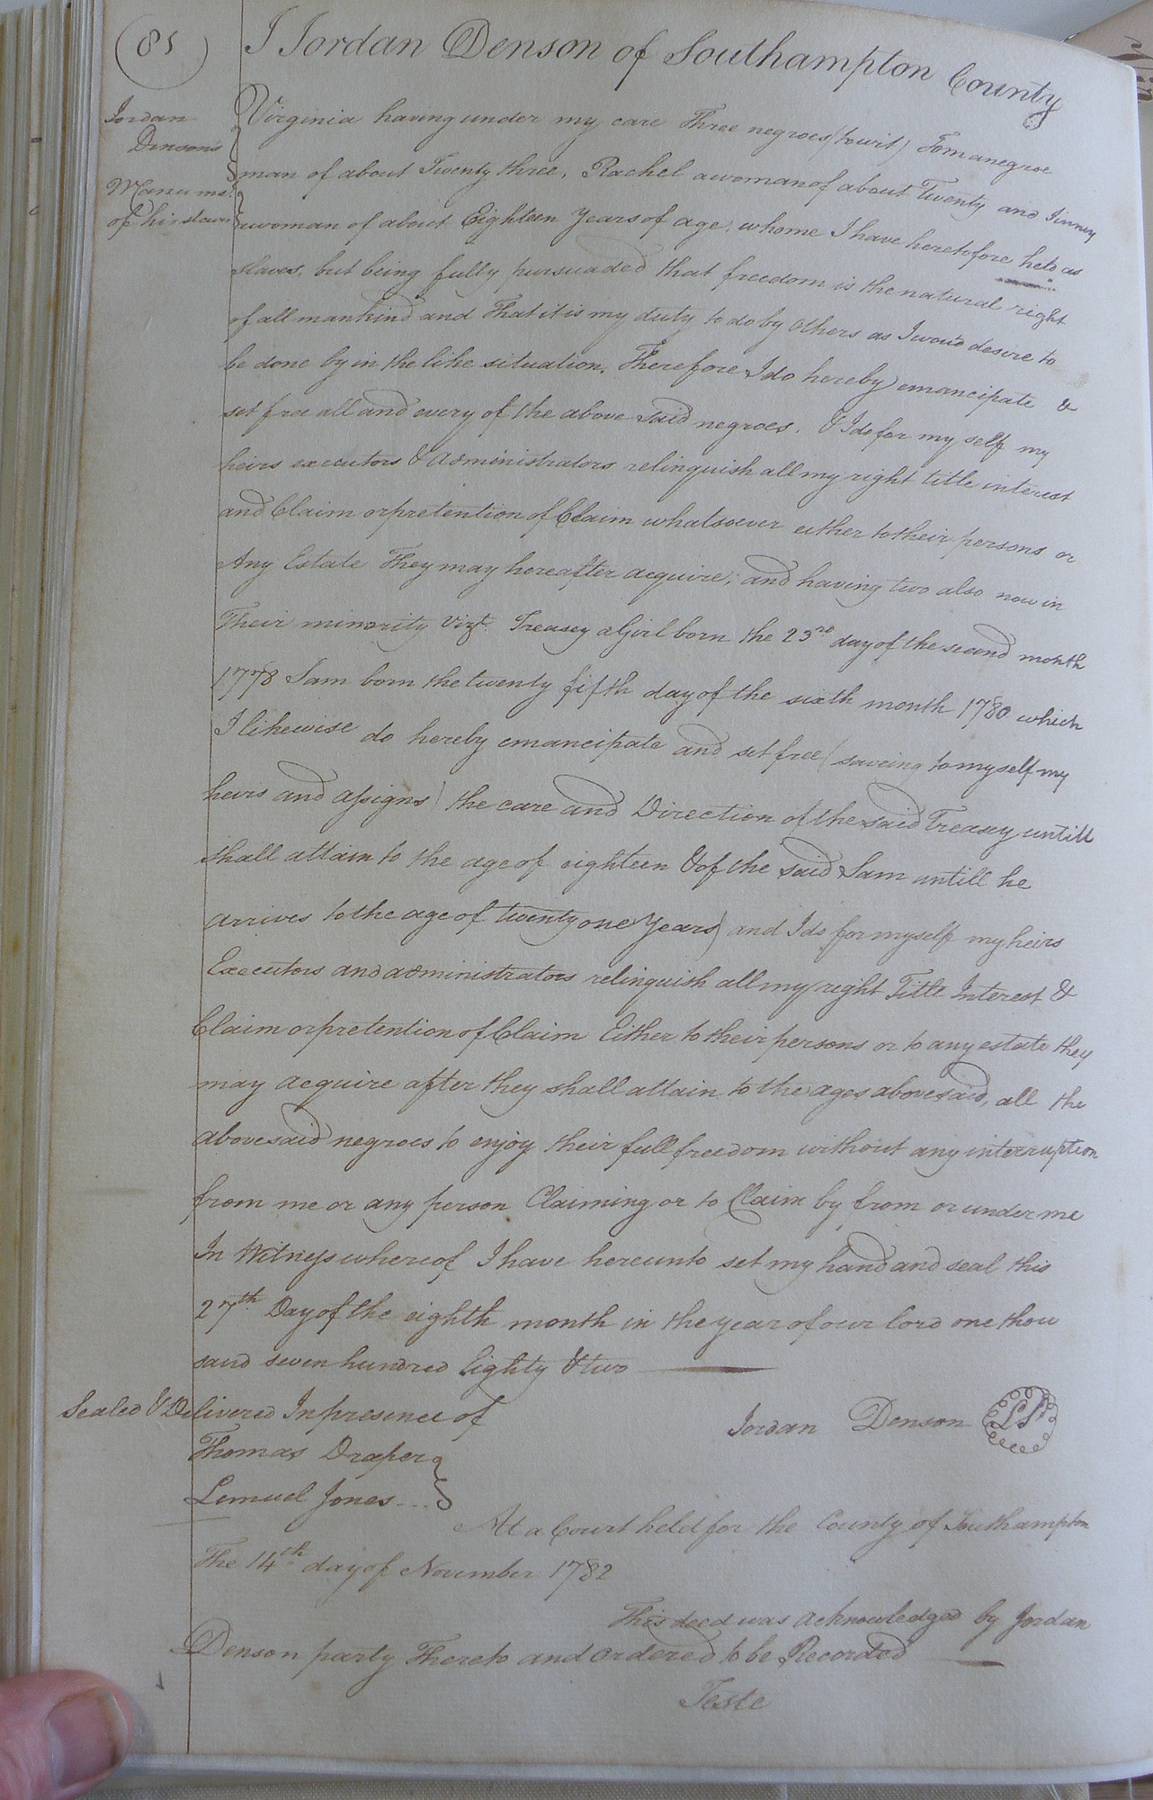 (81)
I Jordan Denson of Southampton County
Jordan
Denson's
Manumn.
of his slaves
Virginia having under my care Three negroes (towit) Tom a negroe
man of about Twenty three, Rachel a woman of about Twenty and Jinney
a woman of about Eighteen Years of age, whome I have heretofore held as
slaves, but being fully pursuaded that freedom is the natural right
of all mankind and That it is my duty to do by others as I wou'd desire to
be done by in the like situation, Therefore I do hereby emancipate &
set free all and every of the above said negroes. & I do for my self my
heirs executors & administrators relinquish all my right title interest
and Claim or pretention of Claim whatsoever either to their persons or
Any Estate They may hereafter acquire; and having two also now in
Their minority Vizt. Treasey a Girl born the 23rd day of the second month
1778 Sam born the twenty fifth day of the sixth month 1780 which
I likewise do hereby emancipate and set free (saveing to myself my
heirs and assigns) the care and Direction of the said Treasey untill
shall attain to the age of eighteen & of the said Sam untill he
arrives to the age of twenty one Years) and I do for myself my heirs
Executors and administrators relinquish all my right Title Interest &
Claim or pretention of Claim Either to their persons or to any estate they
may acquire after they shall attain to the ages abovesaid, all the
abovesaid negroes to enjoy their full freedom without any interruption
from me or any person Claiming or to Claim by from or under me
In Witness whereof I have hereunto set my hand and seal this
27th Day of the eighth month in the year of our lord one thou
sand seven hundred Eighty & two
Sealed & Delivered In presence of
Jordan Denson LS
Thomas Draper
Lemuel Jones
At a Court held for the County of Southampton
The 14th day of November 1782
This deed was acknowledged by Jordan
Denson party Thereto and ordered to be Recorded
Teste